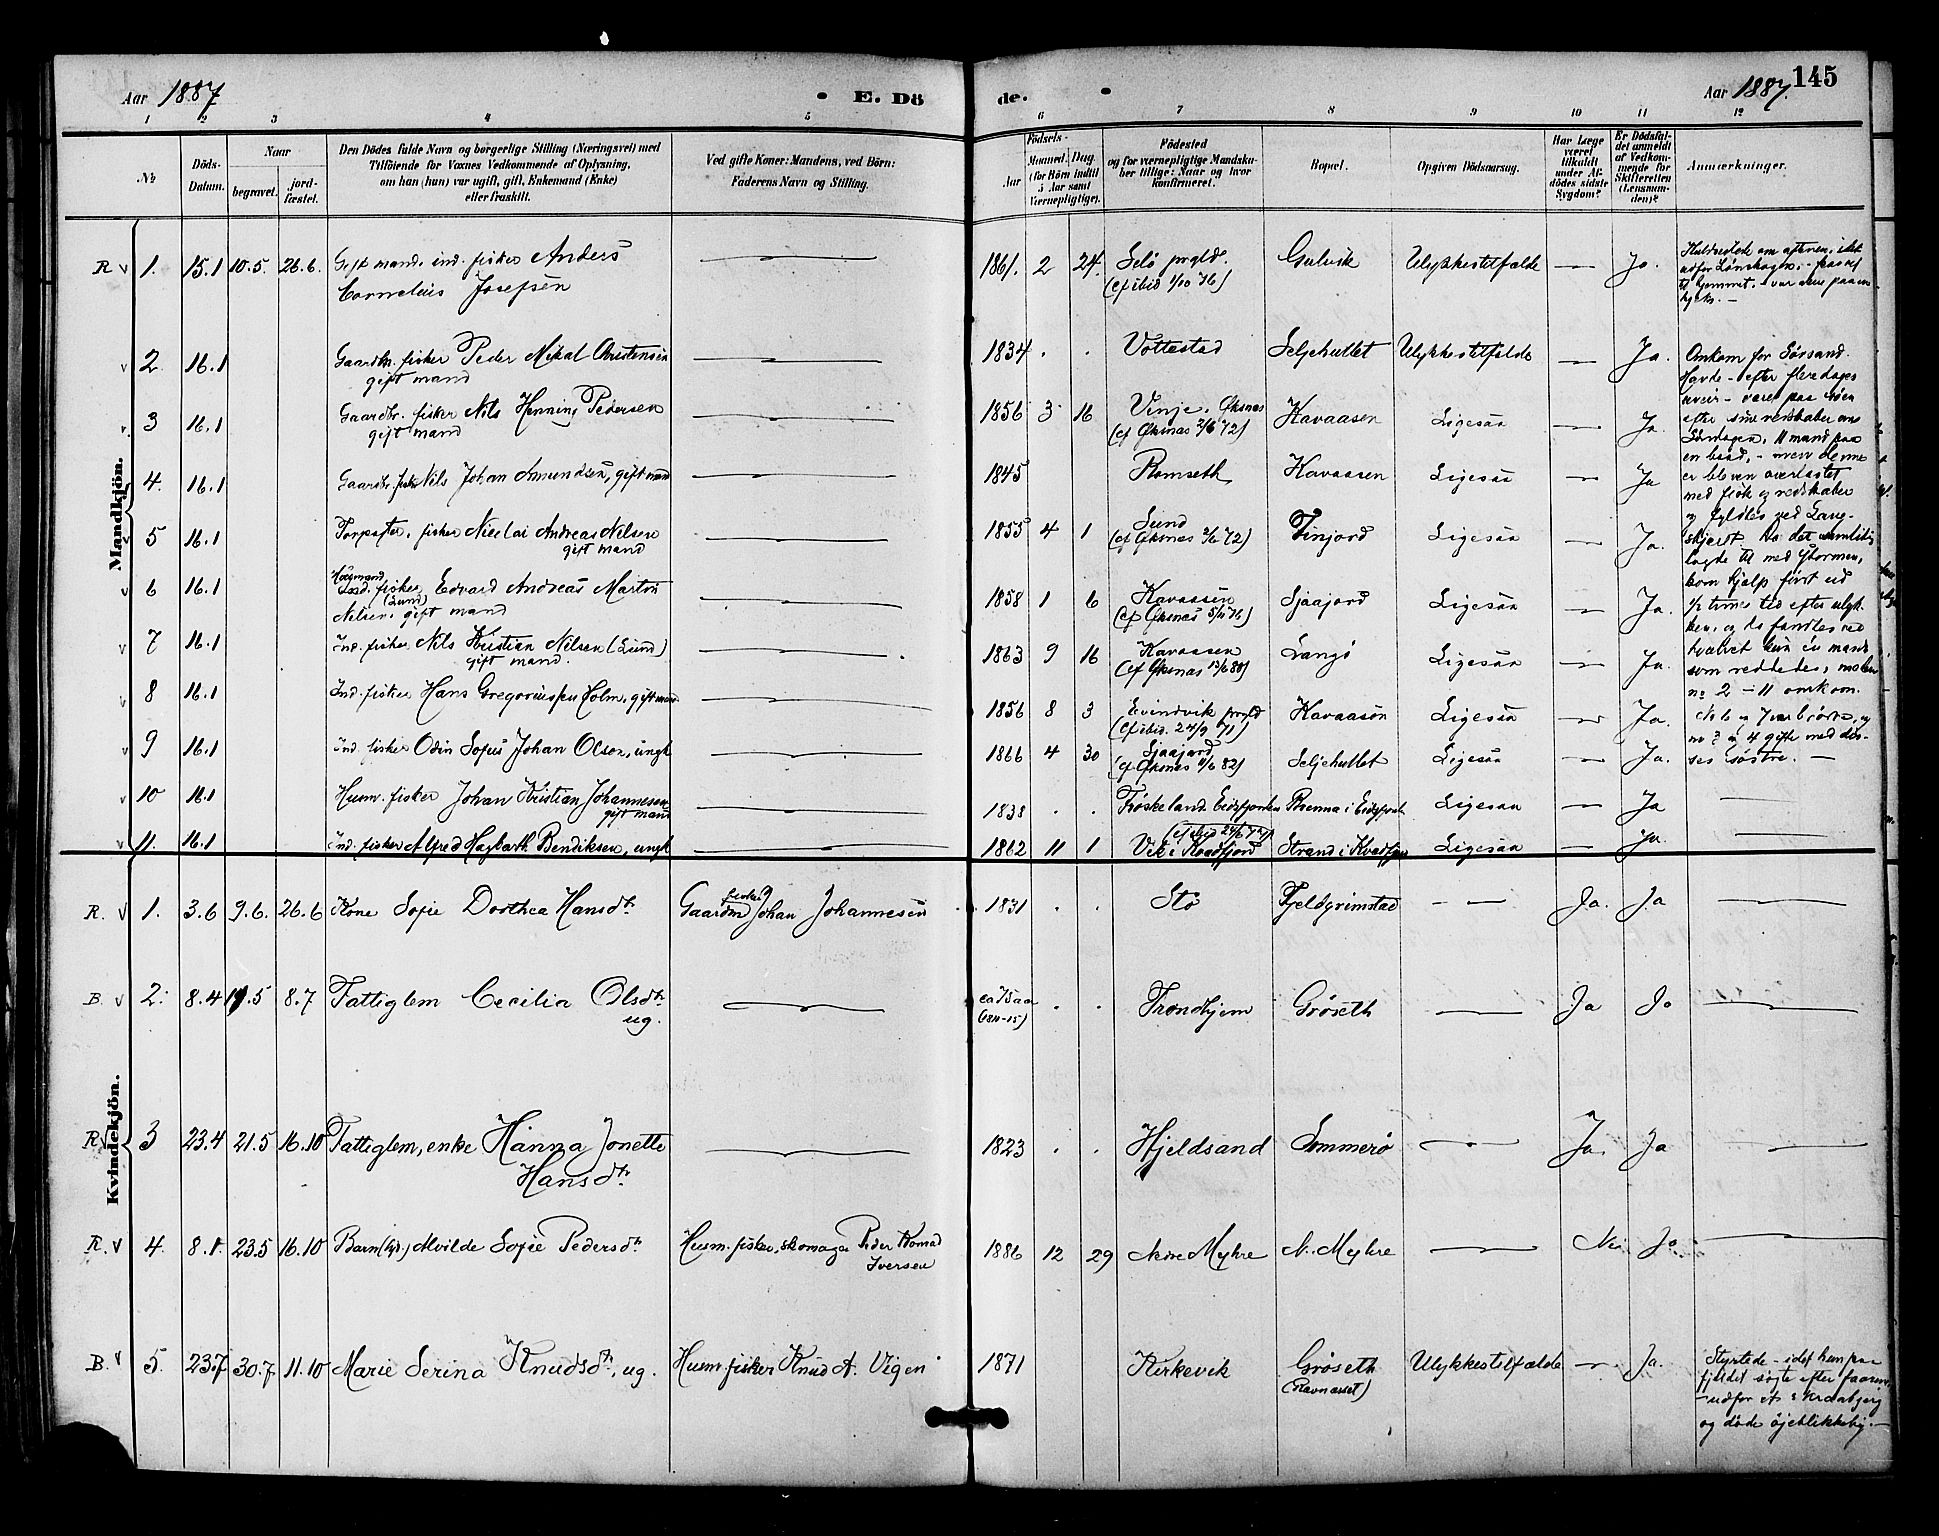 Aar 1887
E. Dö
de.
Aar 1887.
145
1 2 3 4 5 6 7 8 9 10 11 12
№
Döds-Datum.
Naar
begravet.
jord-fæstet.
Den Dödes fulde Navn og borgerlige Stilling (Næringsvei) med
Tilföiende for Voxnes Vedkommende af Oplysning,
om han (hun) var ugift, gift, Enkemand (Enke)
eller fraskilt.
Ved gifte Koner: Mandens, ved Börn:
Faderens Navn og Stilling.
Födsels-
Aar
Maaned. Dag.
(for Börn indtil
5 Aar samt
Værnepligtige).
Födested
og for værnepligtige Mandsku-
ber tillige: Naar og hvor
konfirmeret.
Bopæl.
Opgiven Dödsaarsag.
Har Læge
været
tilkaldt
under Af-
dödes sidste
Sygdom?
Er Dödsfal-
det anmeldt
af Vedkom-
mende for
Skifteretten
(Lensman-
den)?
Anmærkninger.
Mandkjön.
R v 1. 15.1 10.5. 26.6. Gift mand, ind. fisker Anders 1861. 2 24. Selö prgld. Gulvik Ulykkestilfælde — Ja.
Cornelius Josefsen (cf ibid 1/10 76)
v 2 16.1 Gaardbr. fisker Peder Mikal Christensen 1834 . . Vottestad Seljehullet Ulykkestilfælde — Ja. Omkom for Sørsand.
gift mand Havde – efter flere dages
v. 3 16.1 Gaardbr. fisker Nils Henning Pedersen 1856 3 16 Vinje, Øksnes Kavaasen Ligesaa — Ja uveir – været paa Søen
gift mand (cf Øksnes 2/6 72) efter sine redskaber om
4. 16.1 Gaardbr. fisker Nils Johan Amundsen, gift mand 1845 Romseth Kavaasen Ligesaa — Ja Søndagen, 11 mand paa
en baad, – men denne
er bleven overlastet
med fisk og redskaber
v 5 16.1 fisker Nicolai Andreas Nilsen 1855 4 1 Sund Tinjord Ligesaa — Ja. og fyldtes ved Lang-
gift mand (cf Øksnes 2/6 72) skjeret. Da det samtidig
v 6 16.1 Ind. fisker Edvard Andreas Martin 1858 1 6 Kavaasen Sjaajord Ligesaa — Ja. lagde til med Stormen,
(Sund)
Nilsen, gift mand (cf Øksnes 5/11 76) kom hjælp först ud
v 7 16.1 Ind. fisker Nils Kristian Nilsen (Sund) 1863 9 16 Kavaasen Langö Ligesaa — Ja. 1/2 times tid efter ulyk-
gift mand. (cf Øksnes 13/6 80) ken, og da fandtes ved
v 8 16.1 Ind. fisker Hans Gregoriussen Holm, gift mand 1856 8 3 Eivindvik prgld Kavaasen Ligesaa — Ja. hvalvet kun én mand
(cf ibid. 24/9 71) som reddedes, medens
v 9 16.1 Ind. fisker Odin Sofus Johan Olsen, ungk 1866 4 30 Sjaajord Seljehullet Ligesaa — Ja. no 2 – 11 omkom.
(cf Øksnes 11/6 82) No 6 og 7 var brödre, og
no 3 og 4 gifte med dis-
ses söstre. —
v 10 16.1 Husm. fisker Johan Kristian Johannesen 1838 . . Fröskeland Eidsfjorden Renna i Eidsfjord Ligesaa — Ja —
gift mand
v 11. 16.1 Ind. fisker Alfred Hagbarth Bendiksen, ungk 1862 11 1 Vik i Kvadfjord Strand i Kvadfjord Ligesaa — Ja. —
Kvindekjön.
R. v 1. 3.6 9.6. 26.6 Kone Sofie Dorthea Hansdtr Gaardm fisker Johan Johannesen 1831 . . Stö Fjeldgrimstad — Ja. Ja —
B. v 2. 8.4 19.5 8.7 Fattiglem Cecilia Olsdtr — ca 75 aar . . Trondhjem Gröseth — Ja Ja —
ug.
R v 3 23.4 21.5 16.10 Fattiglem, enke Hanna Jonette — 1823 . . Hjeldsand Sommerö — Ja. Ja —
Hansdtr
R. v 4. 8.1. 23.5 16.10 Barn Alvilde Sofie Pedersdtr Husm. fisker, skomager Peder Konrad 1886 12 29 Nedre Myhre N. Myhre — Nei Ja. —
Iversen
B. v 5. 23.7 30.7 11.10 Marie Serina Knudsdtr, ug. Husm. fisker Knud A. Vigen 1871 Kirkevik Gröseth Ulykkestilfælde — Ja. Styrtede – idet hun paa
(Ravnaaset) fjeldet sögte efter faarene
– udfor et
og döde öjeblikkelig. —